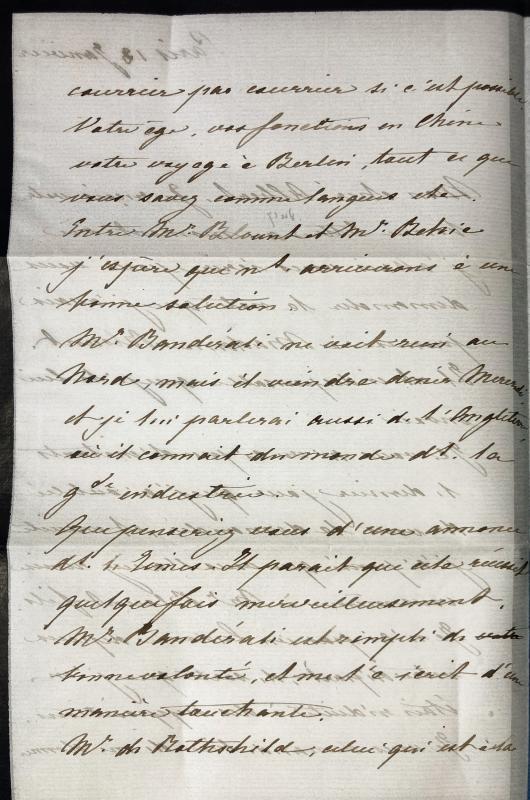 courrier par courrier si c'est possible
Votre âge, vos fonctions en Chine
votre voyage à Berlin, tout ce que
vous savez comme langues etc.
Entre Mr. Blount et Mr.
j'espère que ns. arriverons à une
bonne solution
Mr. Bandérati ne voit rien au
Nord mais il viendra diner Mercredi
et je lui parlerai aussi de l'Angleterre
où il connait du monde ds. la
gde industrie.
Que penseriez vous d'une annonce
ds. le Times Il parait que cela réussit
quelquefois merveilleusement.
Mr. Bandérati est rempli de
bonne volonté, et me l'a écrit d'une
manière touchante.
Mr. de Rothschild, celui qui est à la